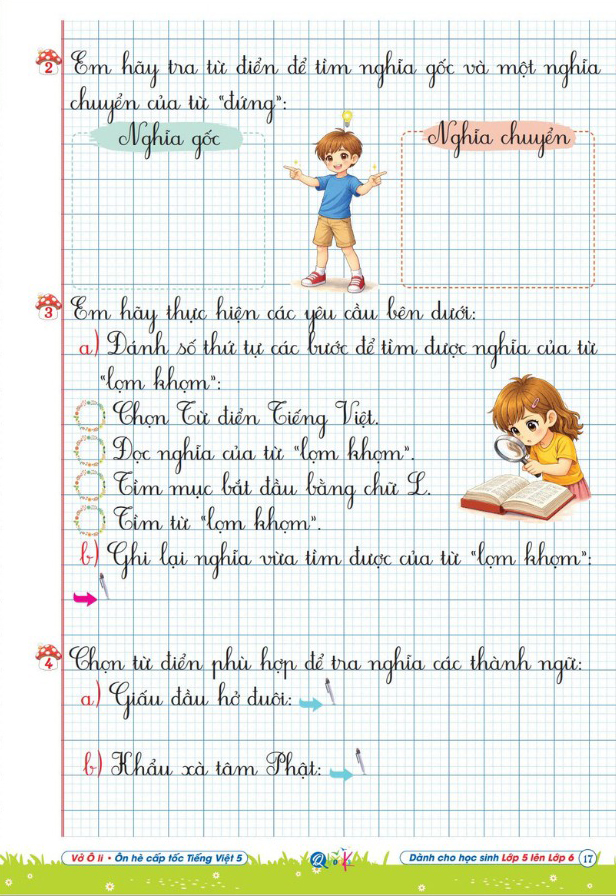 2 Em hãy tra từ điển để tìm nghĩa gốc và một nghĩa
chuyển của từ "đứng":
Nghĩa gốc
Nghĩa chuyển
3 Em hãy thực hiện các yêu cầu bên dưới:
a) Đánh số thứ tự các bước để tìm được nghĩa của từ
"lọm khọm":
Chọn Từ điển Tiếng Việt.
Đọc nghĩa của từ "lọm khọm".
Tìm mục bắt đầu bằng chữ L.
Tìm từ "lọm khọm".
b) Ghi lại nghĩa vừa tìm được của từ "lọm khọm":
4 Chọn từ điển phù hợp để tra nghĩa các thành ngữ:
a) Giấu đầu hở đuôi:
b) Khẩu xà tâm Phật:
Vở Ô li • Ôn hè cấp tốc Tiếng Việt 5
Dành cho học sinh Lớp 5 lên Lớp 6 17